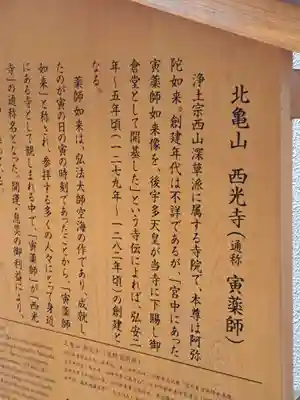 北亀山 西光寺(通称 寅薬師)
浄土宗西山深草派に属する寺院で、本尊は阿弥
陀如来。創建年代は不詳であるが、「宮中にあった
寅薬師如来像を、後宇多天皇が当寺に下賜し御
倉堂として開基した」という寺伝によれば、弘安二
年~五年頃(一二七九年~一二八二年頃)の創建と
なる。
薬師如来は、弘法大師空海の作であり、成就し
たのが寅の日の寅の時刻であったことから、「寅薬師
如来」と称され、参拝する多くの人々にとって身近
にある寺として親しまれる中で、「寅薬師」が「西光
寺」の通称名となった。開運・息災の御利益により、